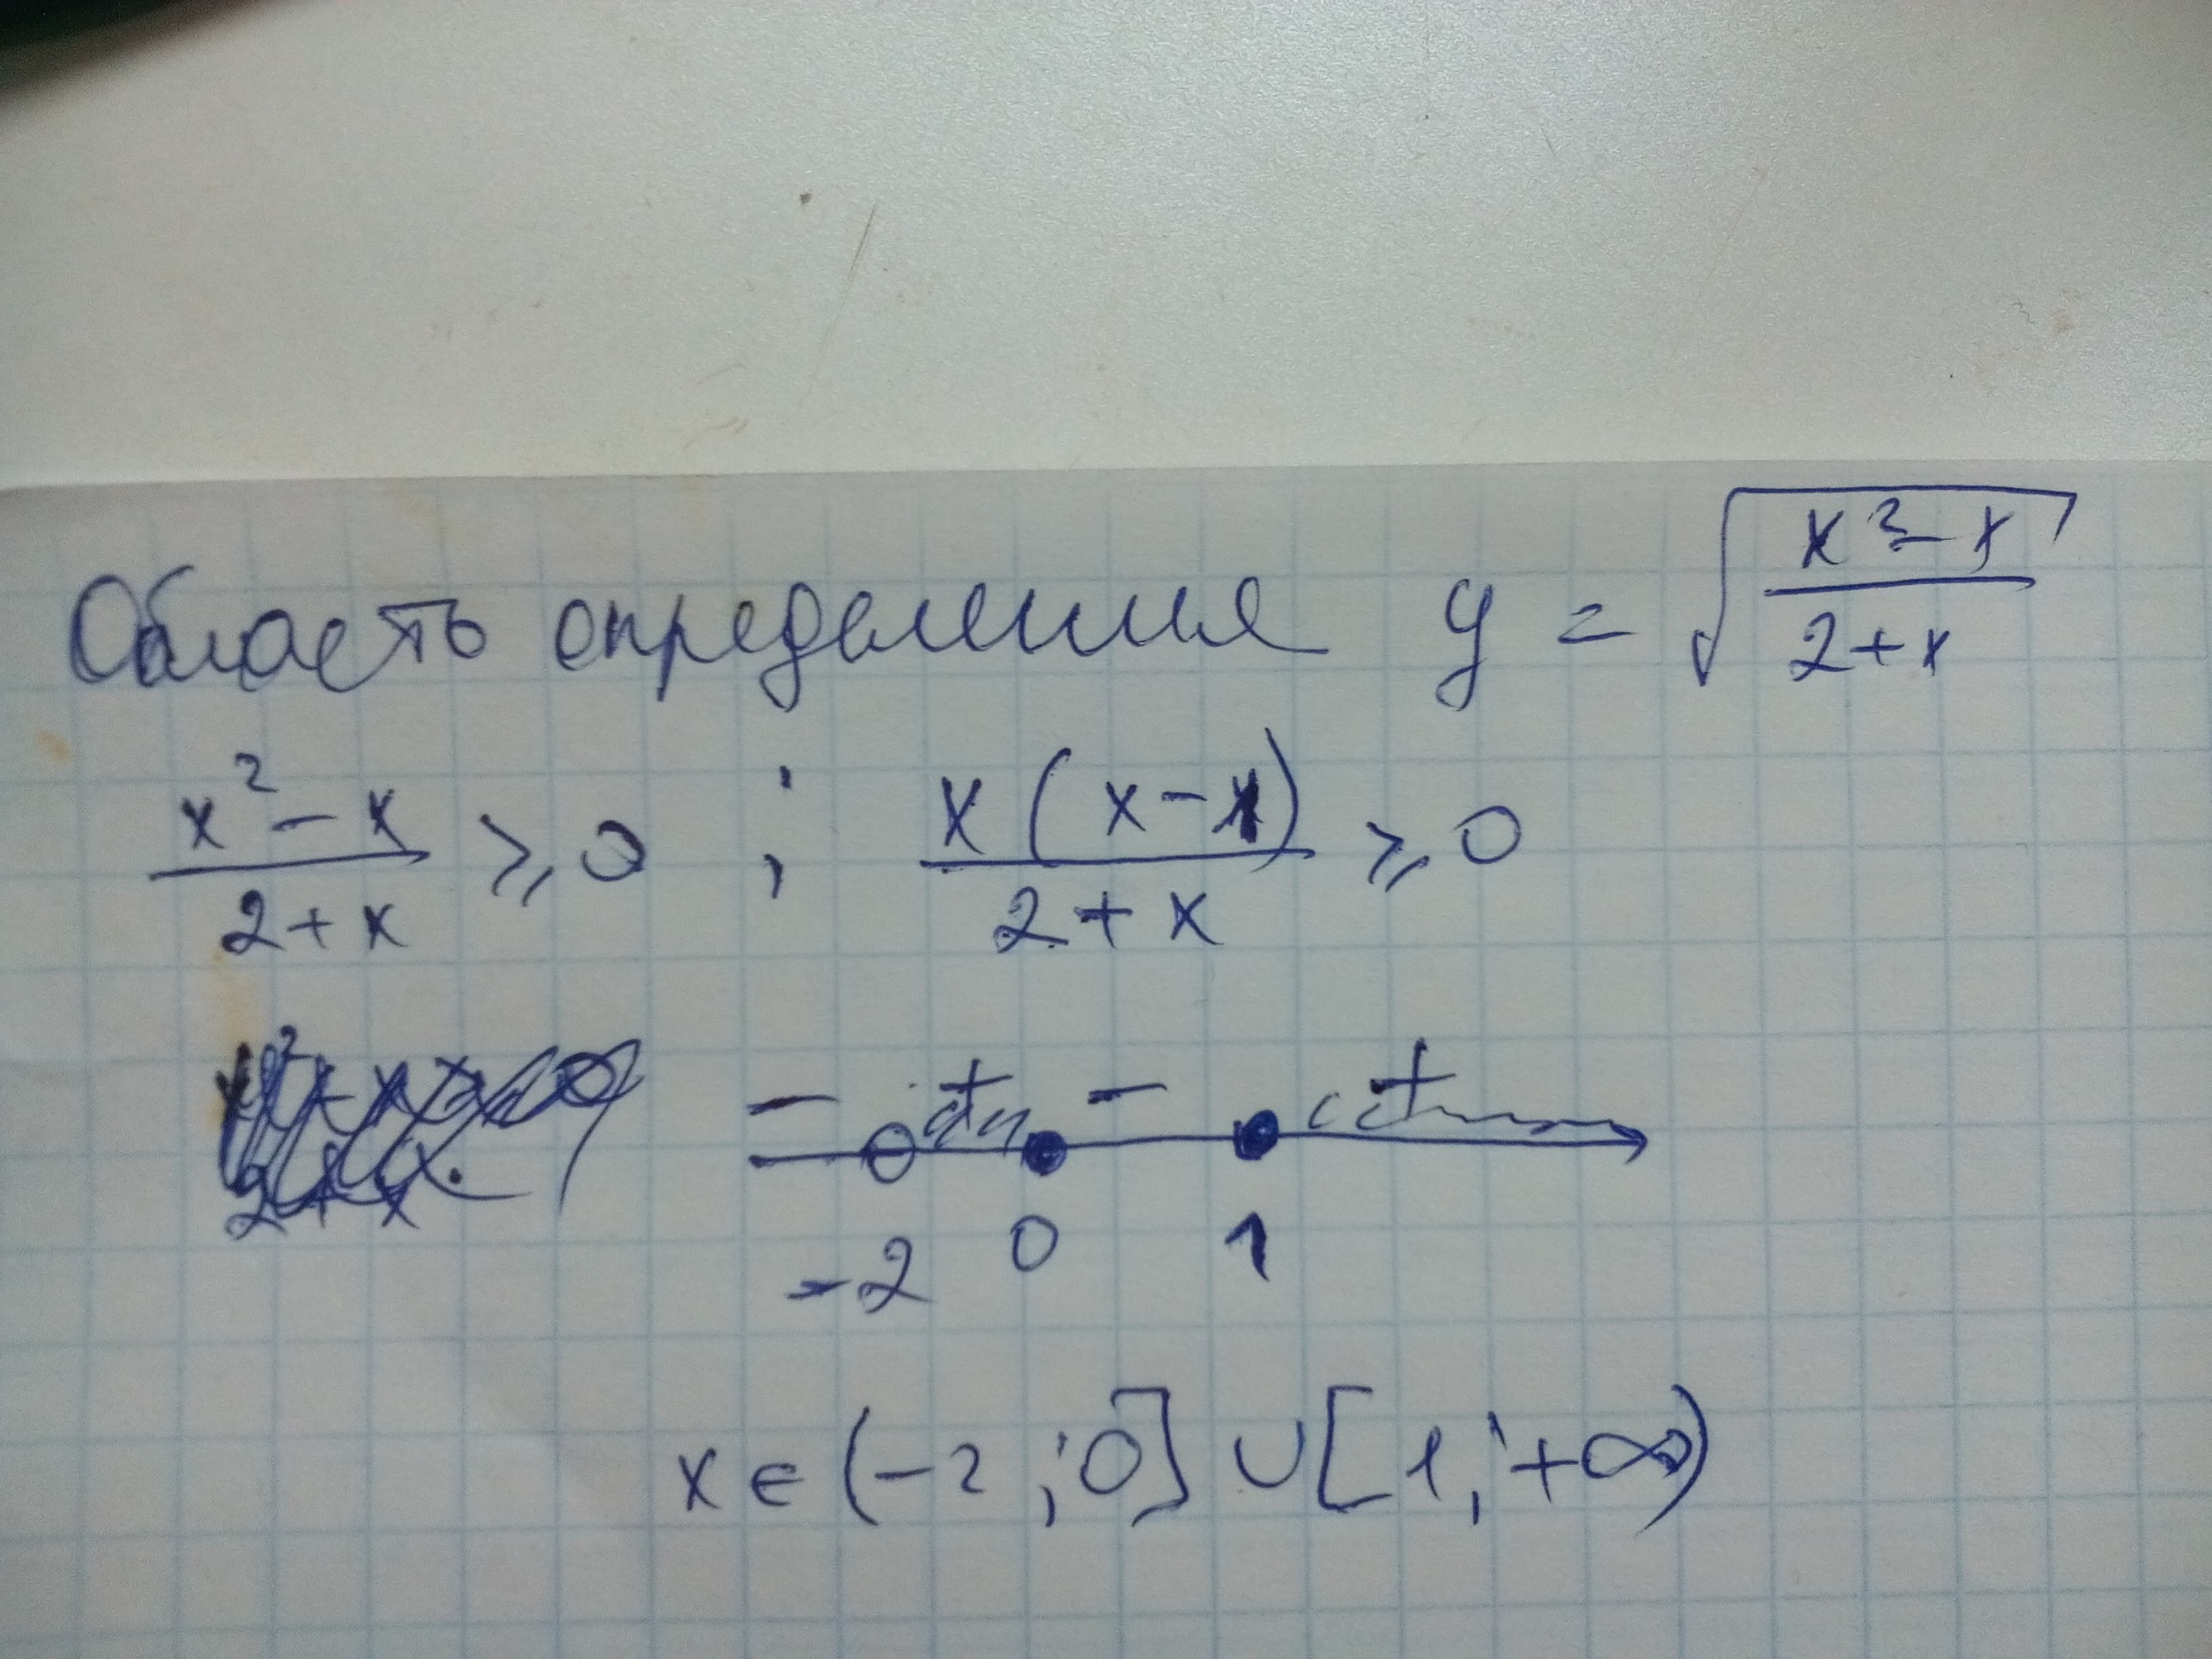 Область определения y = √((x² - x)/(2 + x))
(x² - x)/(2 + x) ⩾ 0 ; (x(x - 1))/(2 + x) ⩾ 0
- + - +
-2 0 1
x ∈ (-2 ; 0] ∪ [1 ; +∞)